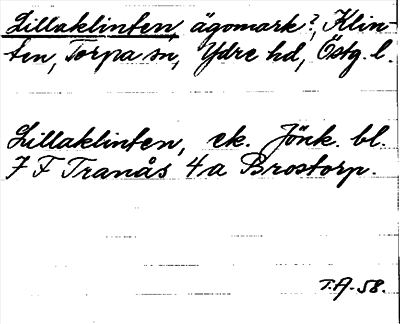 Lillaklinten, ägomark?, Klin-
ten, Torpa sn, Ydre hd, Östg. l.
Lillaklinten, ek. Jönk. bl.
7 F Tranås 4a Brostorp.
T.A. 58.